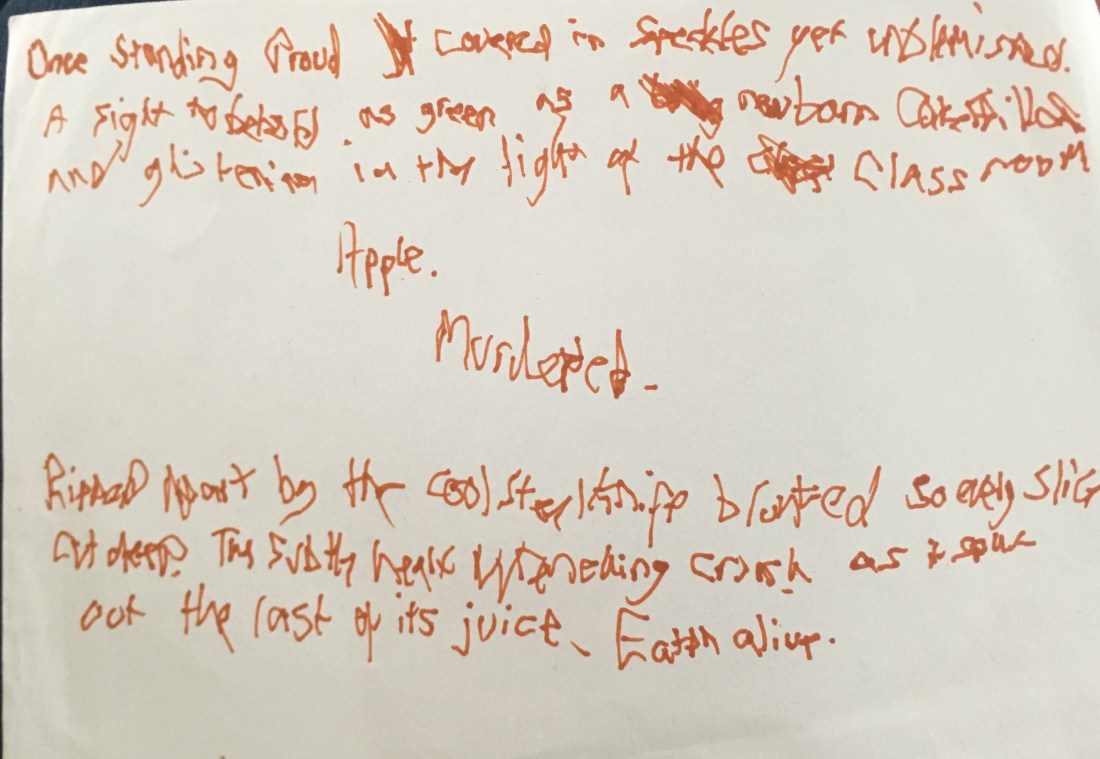 Once Standing Proud covered in speckles yet unblemished.
A sight to behold as green as a newborn Caterpillar
and glistening in the light of the Classroom
Apple.
Murdered.
Ripped Apart by the cool steel knife blunted so every slice
cut deep. The subtly heart wrenching crunch as it spills
out the last of its juice. Eaten alive.